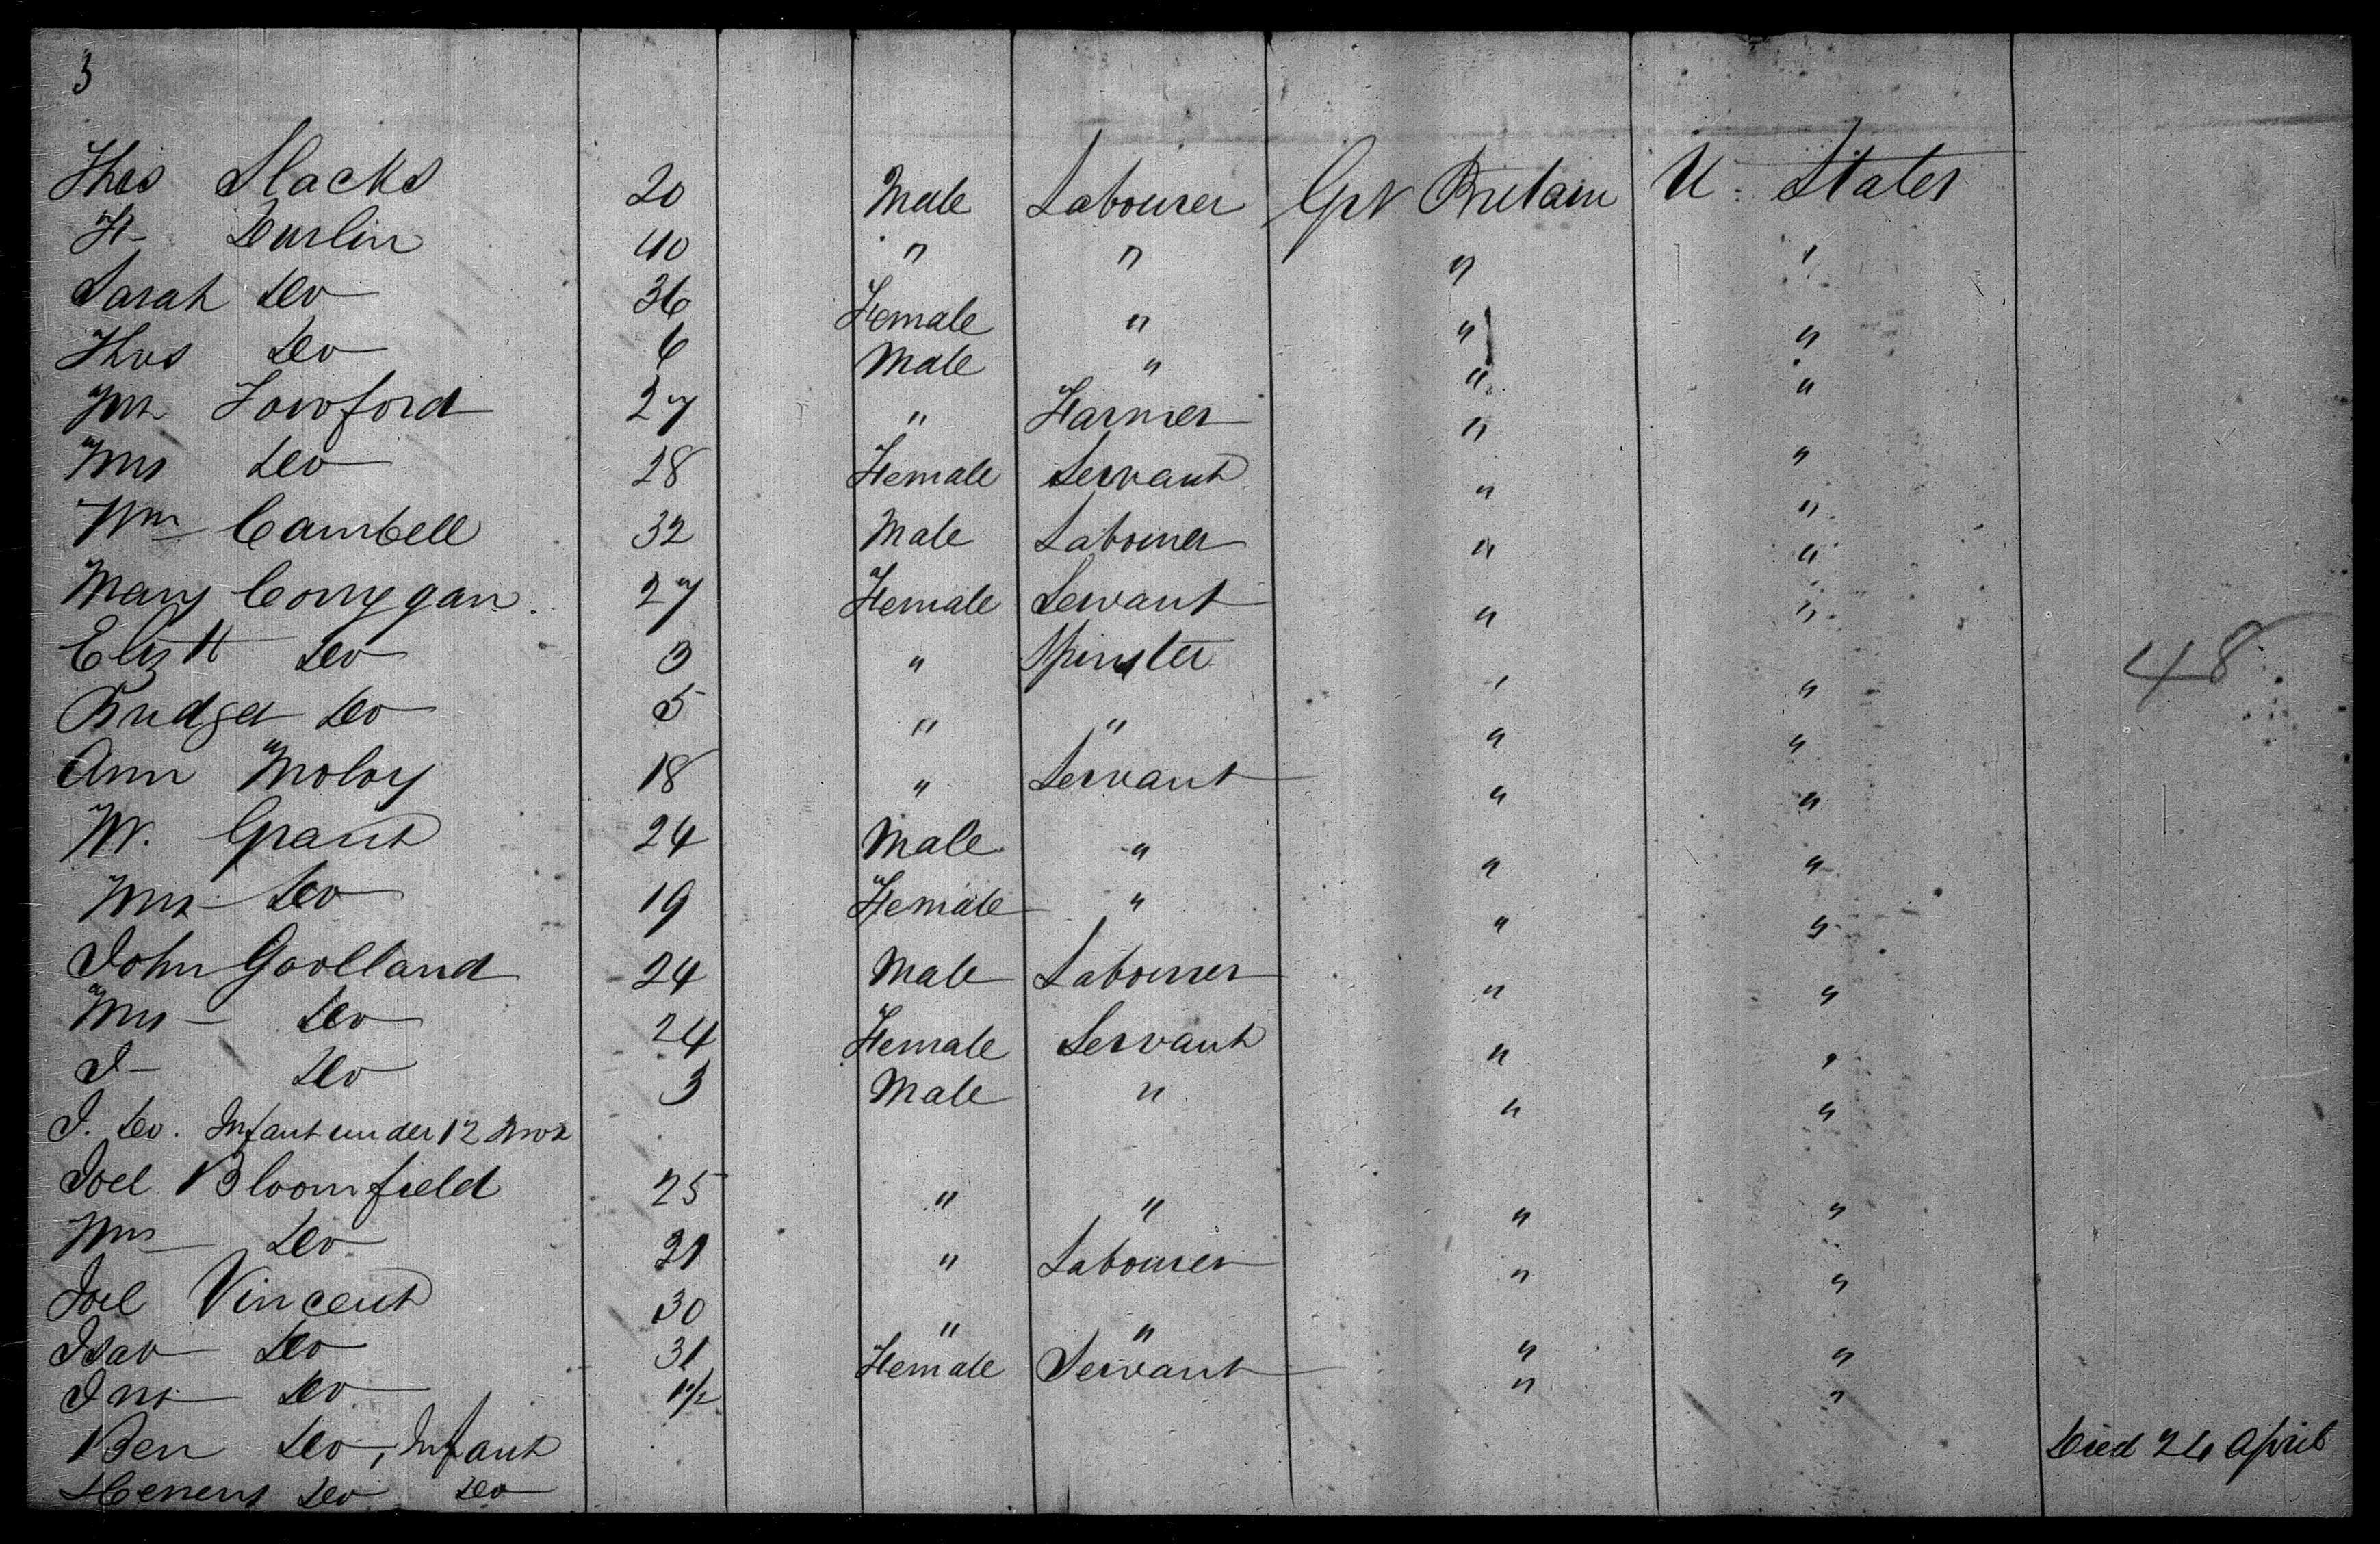 3
Thos Slacks 20 Male Labourer Grt Britain U. States
H- Durlin 40 " " " "
Sarah Do 36 Female " " "
Thos Do 6 Male " " "
Mr Lowford 27 " Farmer " "
Mrs Do 28 Female Servant " "
Wm Cambell 32 Male Labourer " "
Mary Corrygan 27 Female Servant " "
Elizth Do 3 " Spinster " "
Bridget Do 5 " " " "
Ann Moloy 18 " Servant " "
48
W. Grant 24 Male " " "
Mrs Do 19 Female " " "
John Goolland 24 Male Labourer " "
Mrs Do 24 Female Servant " "
J- Do 3 Male " " "
J. Do. Infant under 12 Mos
Joel Bloomfield 25 " " " "
Mrs Do 21 " Labourer " "
Joel Vincent 30 " " " "
Do 31 Female Servant " "
Jno Do 1 1/2 " "
Ben Do, Infant Died 26 April
Do Do